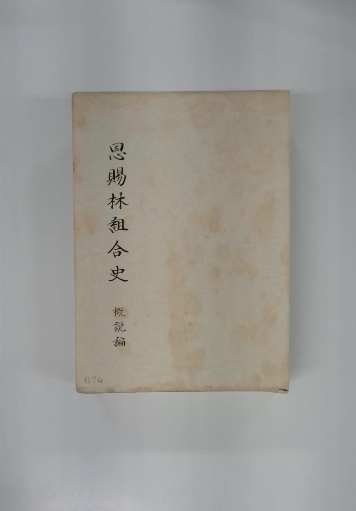 恩賜林組合史
概説編